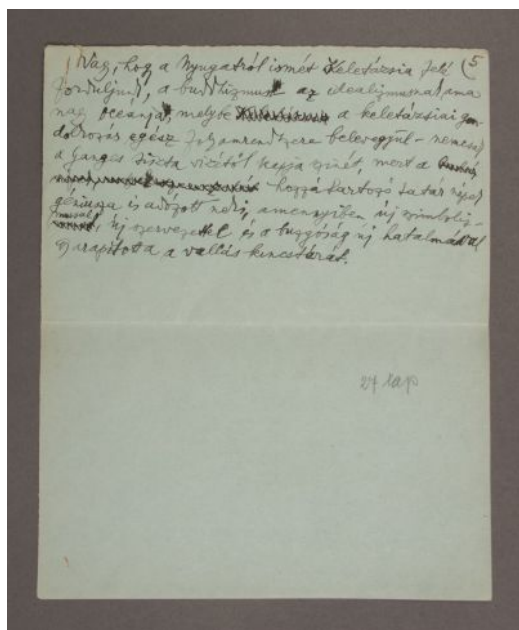 Vagy, hogy a Nyugatról ismét Keletázsia felé (5
forduljunk, a buddhizmus az idealizmusnak ama
nagy oceánja, melybe a keletázsiai gon-
dolkozás egész folyamrendszere belevegyül – nemcsak
a Ganges tiszta vizétől kapja színét, mert a
hozzátartozó tatár népek
géniusza is adózott neki, amennyiben új szimboliz-
mussal, új szervezettel és a buzgóság új hatalmával
gyarapította a vallás kincstárát.
27 lap